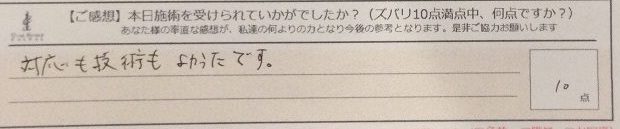 【ご感想】本日施術を受けられていかがでしたか？（ズバリ10点満点中、何点ですか？）
あなた様の率直な感想が、私達の何よりの力となり今後の参考となります。是非ご協力お願いします
対応も技術もよかったです。
10
点